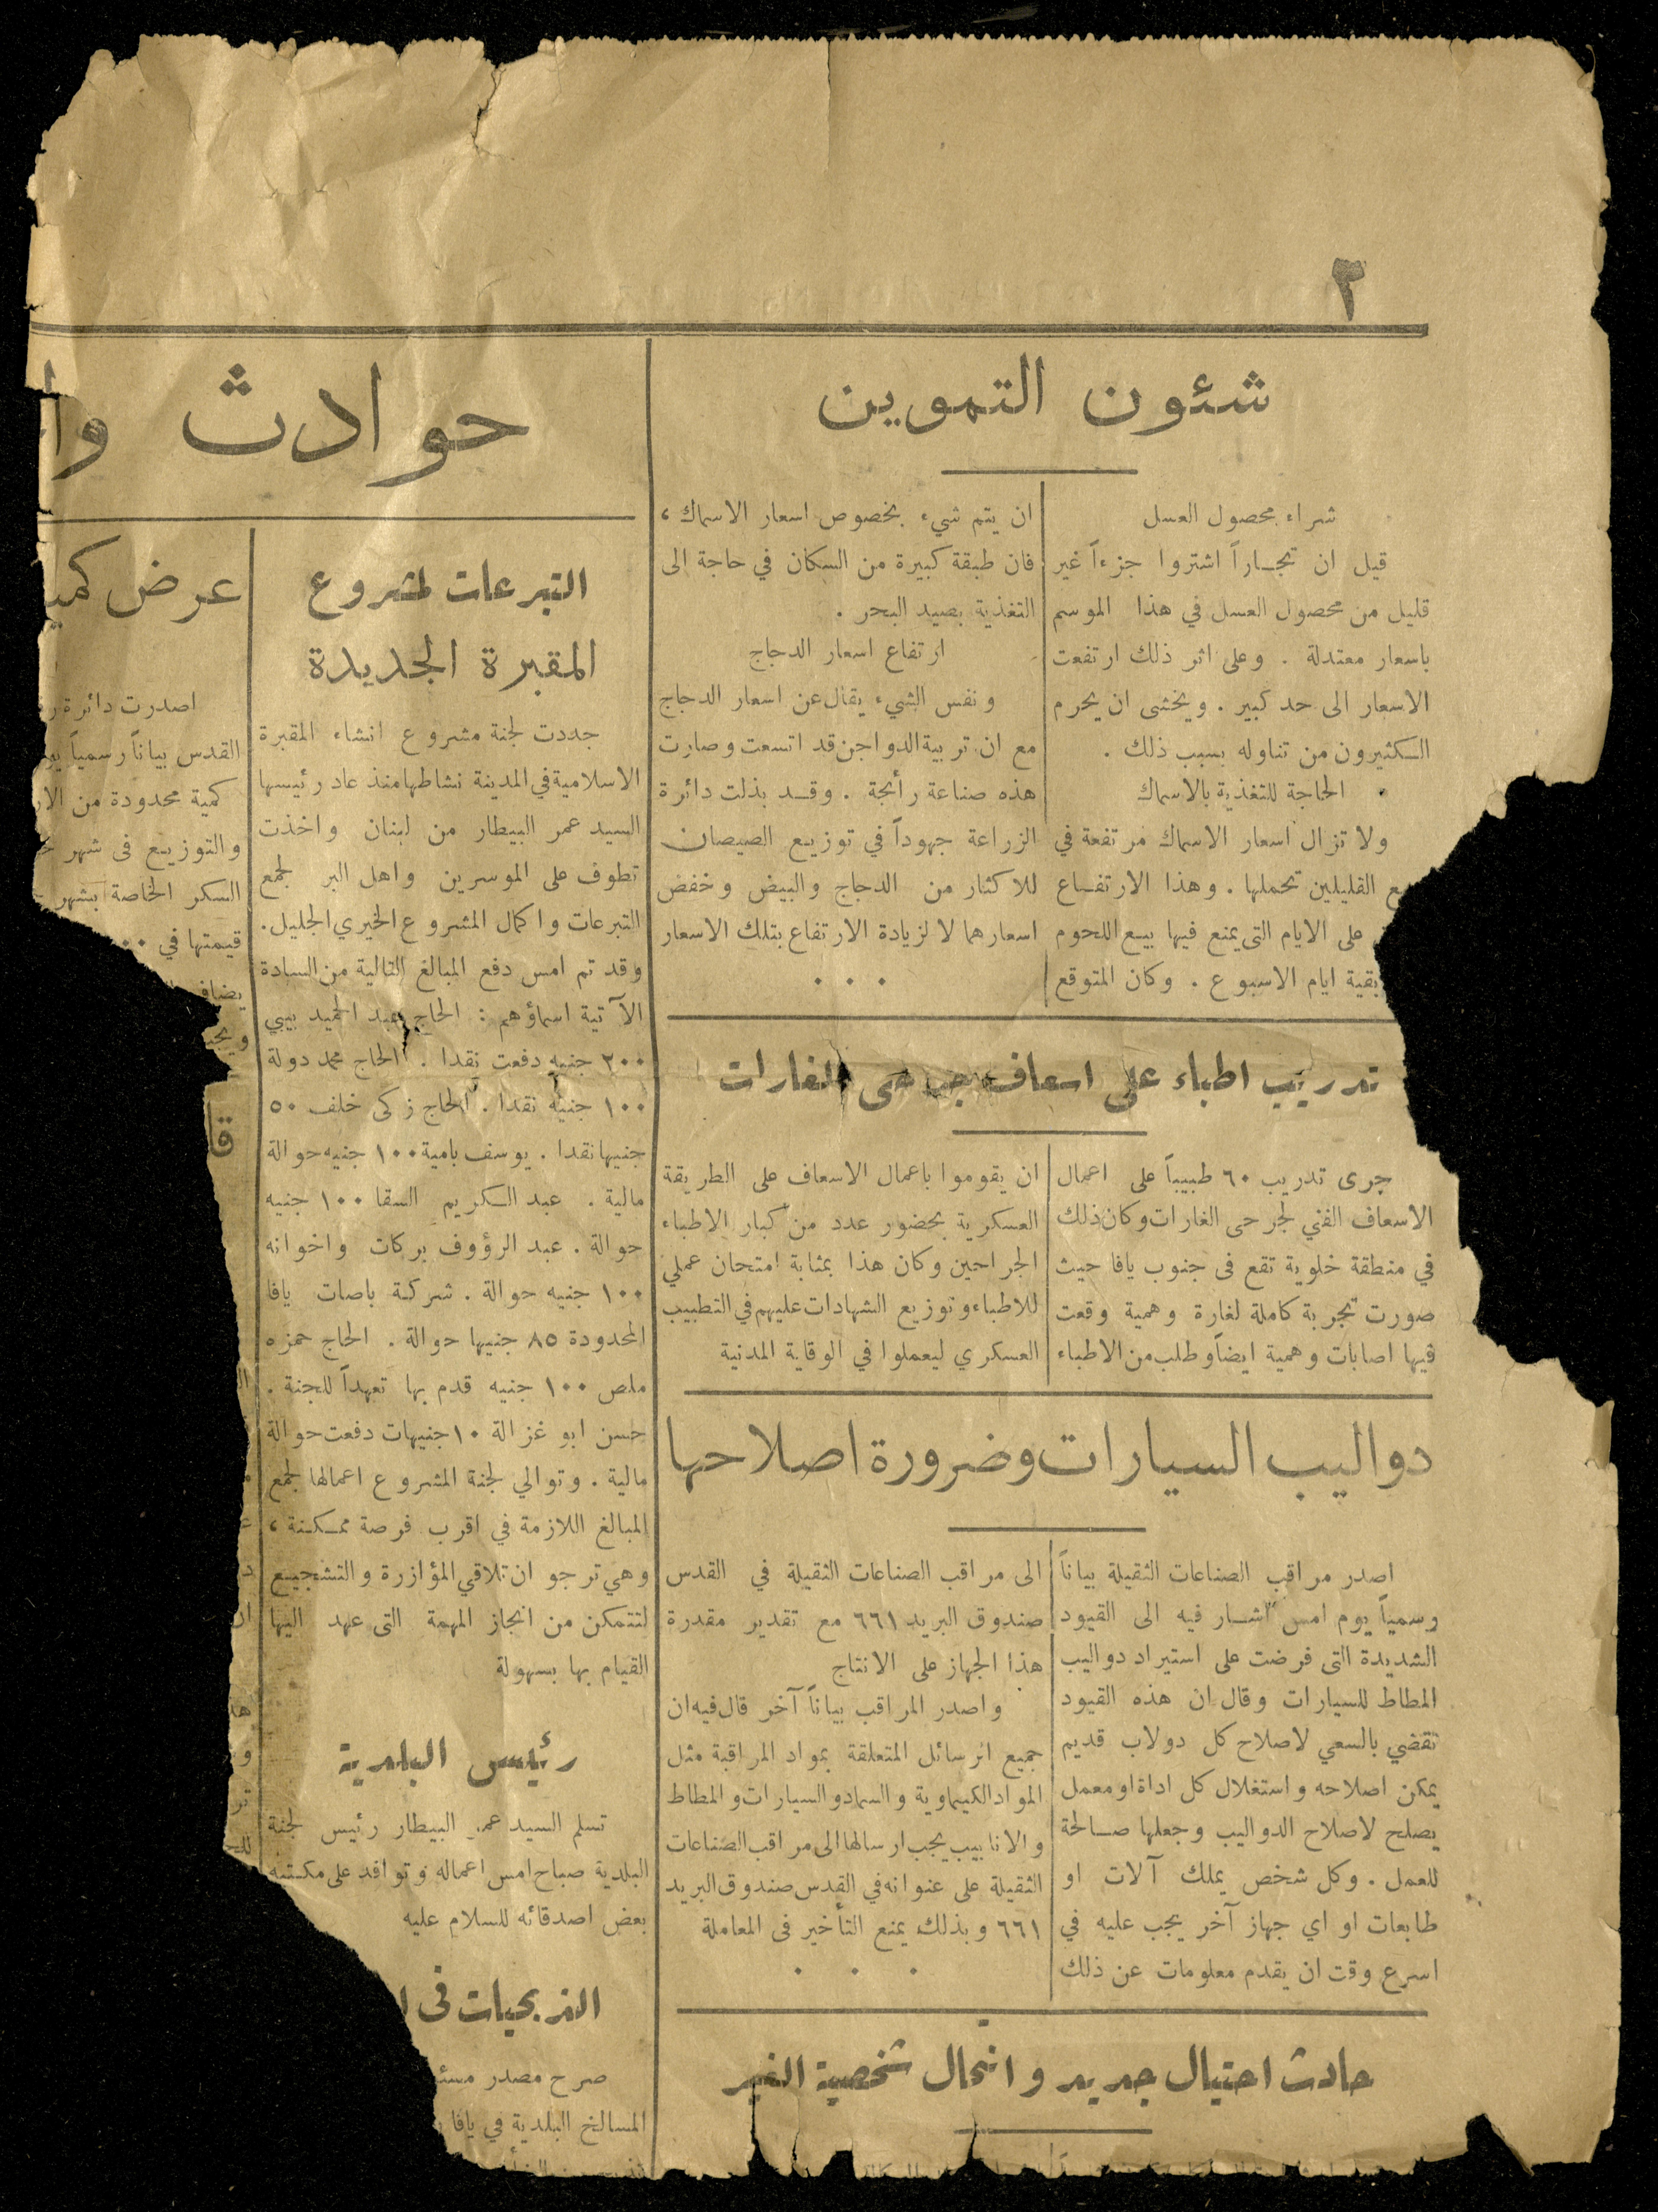 ٢
شئون التموين
شراء محصول العسل
قيل ان تجاراً اشتروا جزءاً غير
قليل من محصول العسل في هذا الموسم
باسعار معتدلة . وعلى اثر ذلك ارتفعت
الاسعار الى حد كبير . ويخشى ان يحرم
الكثيرون من تناوله بسبب ذلك .
الحاجة للتغذية بالاسماك
ولا تزال اسعار الاسماك مرتفعة في
القليلين تحملها . وهذا الارتفاع
على الايام التى يمنع فيها بيع اللحوم
بقية ايام الاسبوع . وكان المتوقع
ان يتم شيء بخصوص اسعار الاسماك ،
فان طبقة كبيرة من السكان في حاجة الى
التغذية بصيد البحر .
ارتفاع اسعار الدجاج
ونفس الشيء يقال عن اسعار الدجاج
مع ان تربية الدواجن قد اتسعت وصارت
هذه صناعة رأئجة . وقد بذلت دائرة
الزراعة جهوداً في توزيع الصيصان
للاكثار من الدجاج والبيض وخفض
اسعارهما لا لزيادة الارتفاع بتلك الاسعار
. . .
تدريب اطباء على اسعاف جرحى الغارات
جرى تدريب ٦٠ طبيباً على اعمال
الاسعاف الفني لجرحى الغارات وكان ذلك
في منطقة خلوية تقع فى جنوب يافا حيث
صورت تجربة كاملة لغارة وهمية وقعت
فيها اصابات وهمية ايضاً وطلب من الاطباء
ان يقوموا باعمال الاسعاف على الطريقة
العسكرية بحضور عدد من كبار الاطباء
الجراحين وكان هذا بمثابة امتحان عملي
للاطباء وتوزيع الشهادات عليهم في التطبيب
العسكري ليعملوا في الوقاية المدنية
دواليب السيارات وضرورة اصلاحها
اصدر مراقب الصناعات الثقيلة بياناً
رسمياً يوم امس اشار فيه الى القيود
الشديدة التى فرضت على استيراد دواليب
المطاط للسيارات وقال ان هذه القيود
تقضي بالسعي لاصلاح كل دولاب قديم
يمكن اصلاحه واستغلال كل اداة او معمل
يصلح لاصلاح الدواليب وجعلها صالحة
للعمل . وكل شخص يملك آلات او
طابعات او اي جهاز آخر يجب عليه في
اسرع وقت ان يقدم معلومات عن ذلك
الى مراقب الصناعات الثقيلة في القدس
صندوق البريد ٦٦١ مع تقدير مقدرة
هذا الجهاز على الانتاج
واصدر المراقب بياناً آخر قال فيه ان
جميع الرسائل المتعلقة بمواد المراقبة مثل
المواد الكيماوية والسماد والسيارات والمطاط
والانابيب يجب ارسالها الى مراقب الصناعات
الثقيلة على عنوانه في القدس صندوق البريد
٦٦١ وبذلك يمنع التأخير فى المعاملة
. . .
حادث احتيال جديد وانتحال شخصية الغير
حوادث
التبرعات لمشروع
المقبرة الجديدة
جددت لجنة مشروع انشاء المقبرة
الاسلامية في المدينة نشاطها منذ عاد رئيسها
السيد عمر البيطار من لبنان واخذت
تطوف على الموسرين واهل البر لجمع
التبرعات واكمال المشروع الخيري الجليل .
وقد تم امس دفع المبالغ التالية من السادة
الآتية اسماؤهم : الحاج عبد الحميد بيبي
٢٠٠ جنيه دفعت نقدا . الحاج محمد دولة
١٠٠ جنيه نقدا . الحاج زكى خلف ٥٠
جنيها نقدا . يوسف بامية ١٠٠ جنيه حوالة
مالية . عبد الكريم السقا ١٠٠ جنيه
حوالة . عبد الرؤوف بركات واخوانه
١٠٠ جنيه حوالة . شركة باصات يافا
المحدودة ٨٥ جنيها حوالة . الحاج حمزه
ملص ١٠٠ جنيه قدم بها تعهداً للجنة .
حسن ابو غزالة ١٠ جنيهات دفعت حوالة
مالية . وتوالي لجنة المشروع اعمالها لجمع
المبالغ اللازمة في اقرب فرصة ممكنة ،
وهي ترجو ان تلاقي المؤازرة والتشجيع
لتتمكن من انجاز المهمة التى عهد اليها
القيام بها بسهولة
رئيس البلدية
تسلم السيد عمر البيطار رئيس لجنة
البلدية صباح امس اعماله وتوافد على مكتبه
بعض اصدقائه للسلام عليه
الذبحيات فى
صرح مصدر
المسالخ البلدية في يافا
عرض
اصدرت دائرة
القدس بياناً رسمياً
كمية محدودة من
والتوزيع فى شهر
السكر الخاصة بشهر
قيمتها في